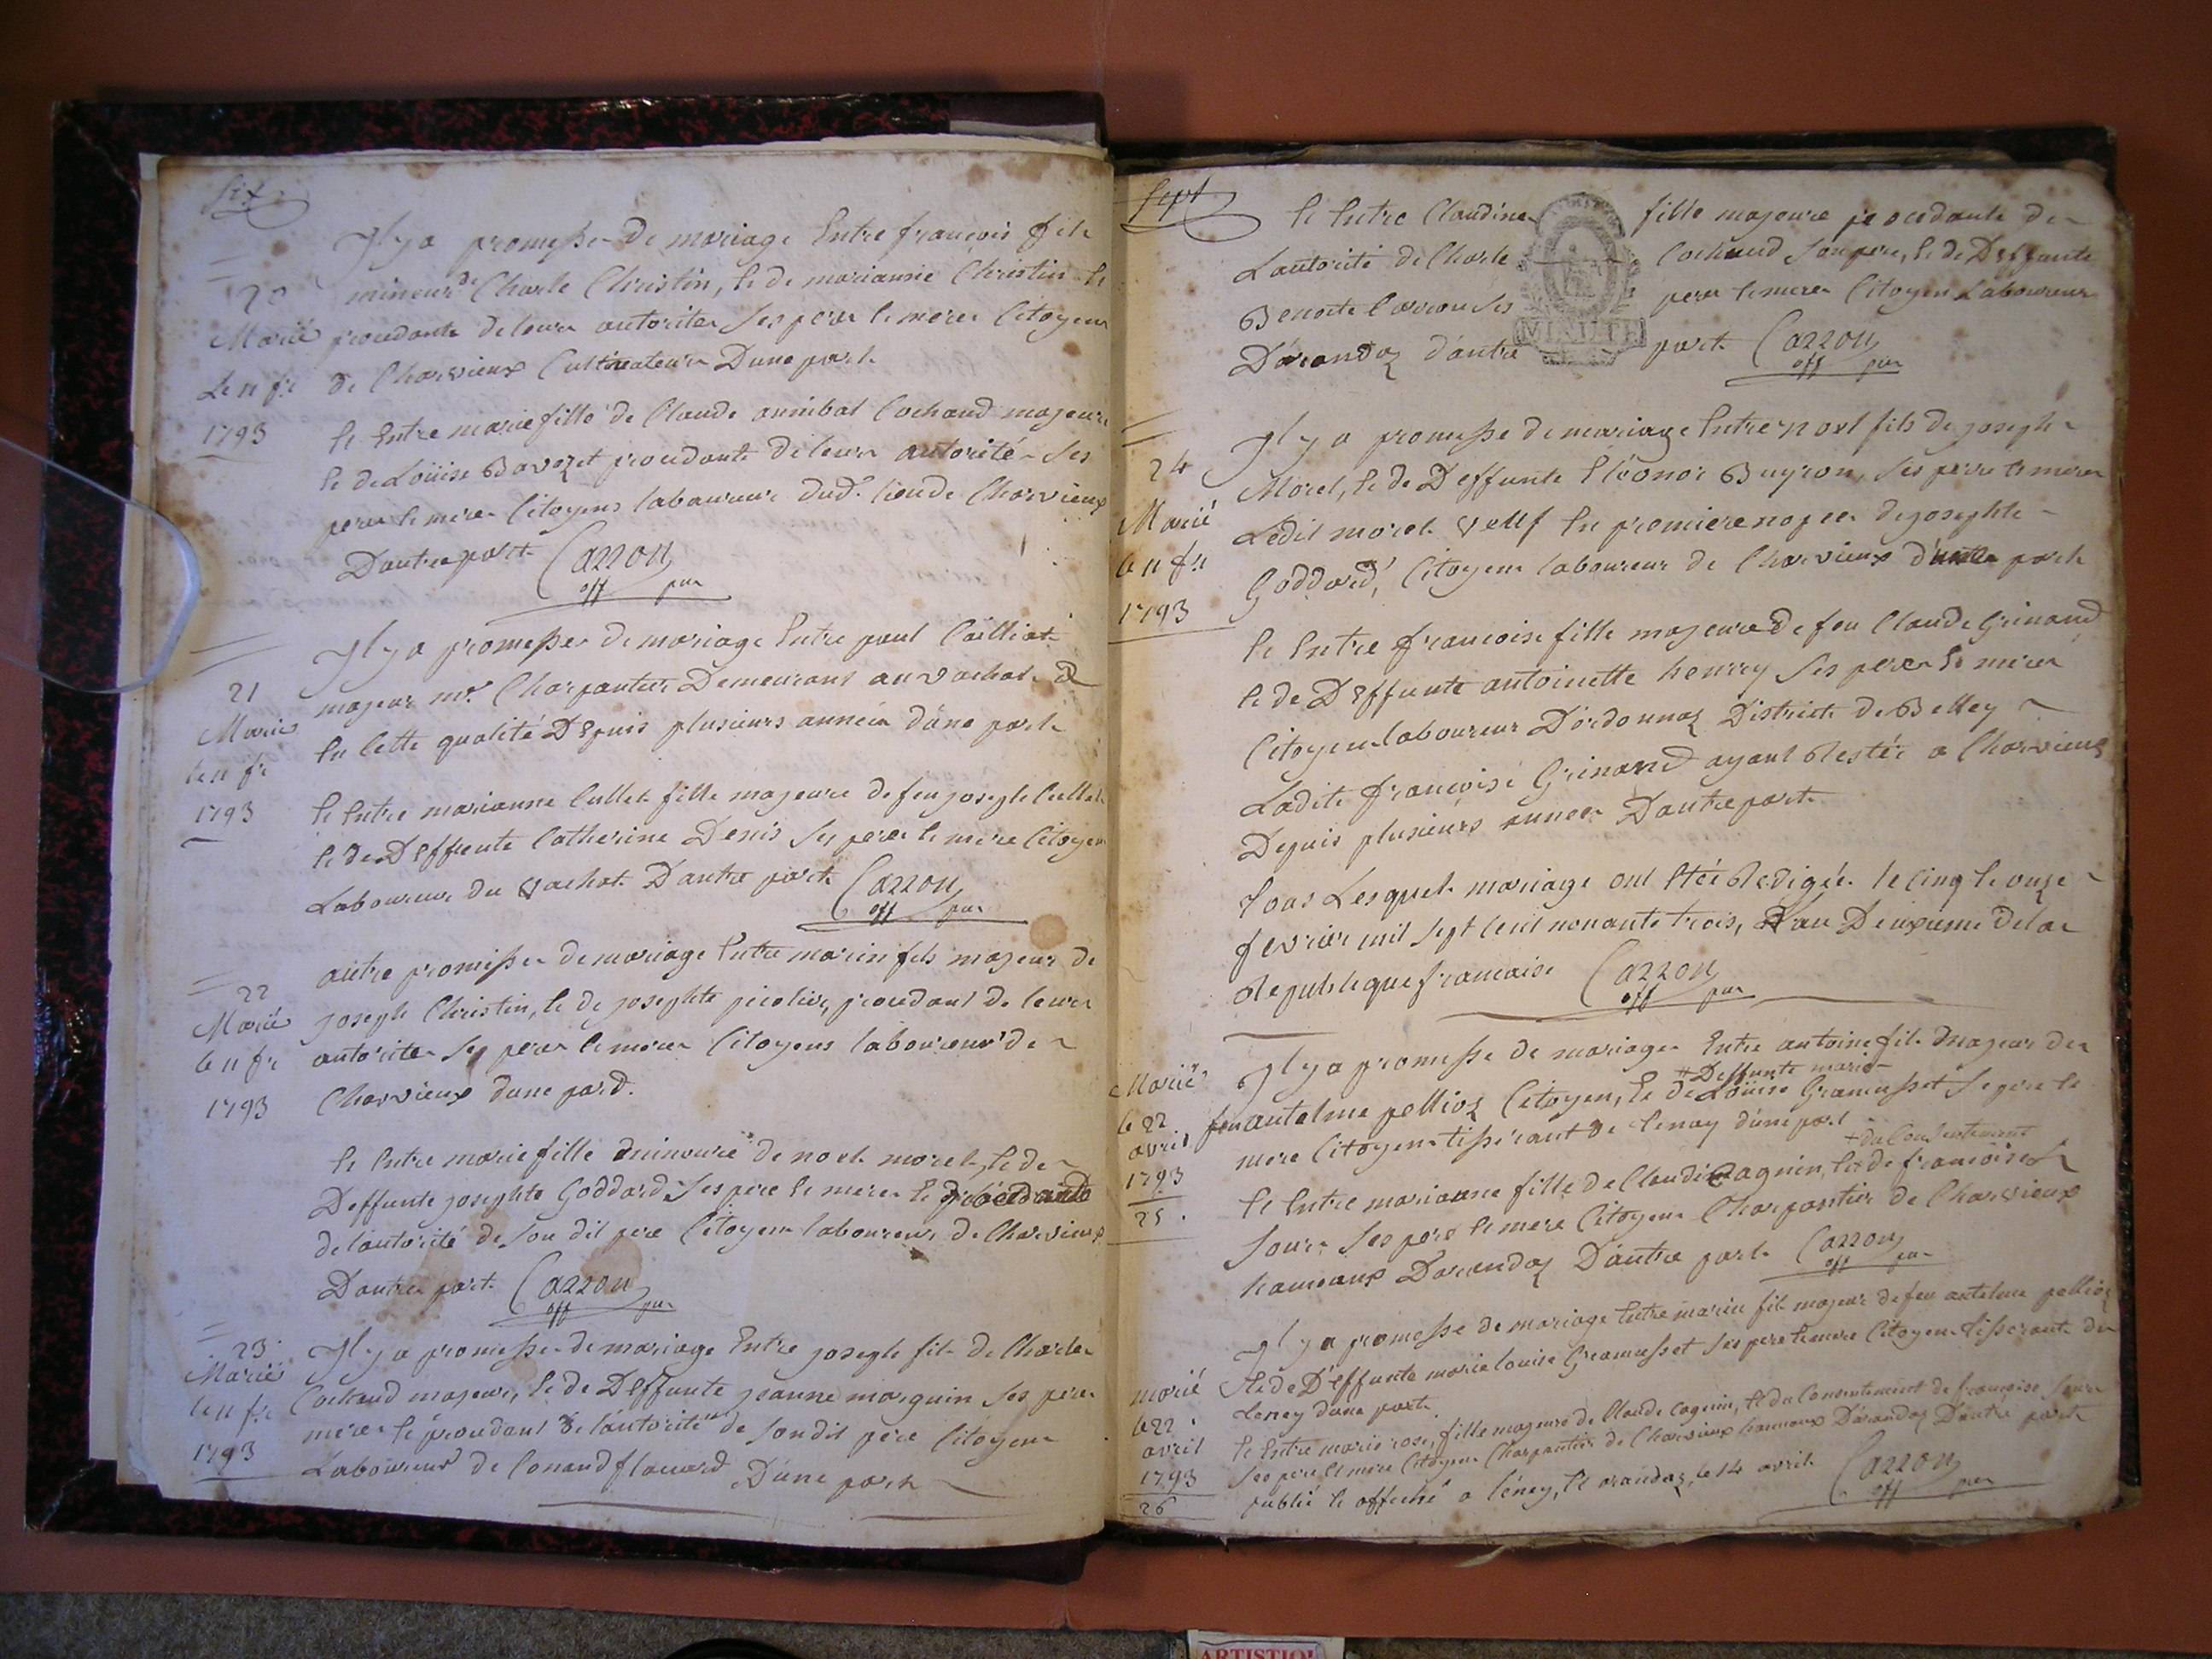 Six
Il y a promesse de mariage Entre francois fils
20 mineur de Charle Christin, Et de marianne Christin Et
Marié procedante de leurs autorites Ses pere Et mere Citoyens
Le 11 fr de Charvieux Cultivateur D'une part
1793 Et Entre marie fille de Claude annibal Cochaud majeure
Et de Loüise Bavozet procedante de leurs autorité Ses
pere Et mere Citoyens laboureur dud. lieu de Charvieux
D'autre part Carron
off pur
Il y a promesse de mariage Entre paul Cailliat
21 majeur me. Charpantier Demeurant au Vachat &
Marié En Cette qualité Depuis plusieurs année d'une part
le 11 fr
1793 Et Entre marianne Cullet fille majeure de feu joseph Cullet
Et de Deffunte Catherine Denis Ses pere Et mere Citoyen
Laboureur du Vachat D'autre part Carron
off pur
autre promesse de mariage Entre marin fils majeur de
22 joseph Christin, Et de josephte picolive, procedant de leurs
Marié autorites Ses pere Et mere Citoyens laboureur de
le 11 fr Charvieux d'une pard.
1793
Et Entre marie fille mineure de noel morel, Et de
Deffunte josephte Goddard Ses pere Et mere Et procedante
de l'autorité de Son dit pere Citoyen laboureur de Charvieux
D'autre part Carron
off pur
23 Il y a promesse de mariage Entre joseph fils de Charle
Marié Cochaud majeur, Et de Deffunte jeanne marguin Ses pere
le 11 fr mere Et procedant de l'autorité de Son dit pere Citoyen
1793 Laboureur de Conand flauard D'une part
Sept
Et Entre Claudine fille majeure procedante de
Lautorité de Charle Cochaud Son pere, Et de Deffunte
Benoite Carron Ses pere Et mere Citoyen Laboureur
D'arandaz d'autre part Carron
MINUTE
off pur
Il y a promesse de mariage Entre noel fils de joseph
24 Morel, Et de Deffunte Eléonor Buyron, Ses pere Et mere
Marié Ledit morel Veuf En premiere noces de josephte
le 11 fr Goddard, Citoyen laboureur de Charvieux d'une part
1793
Et Entre francoise fille majeure de feu Claude Grinand
Et de Deffunte antoinette henrey Ses pere Et mere
Citoyen laboureur D'ordonnaz District de Belley
Ladite francoise Grinand ayant Restée a Charvieux
Depuis plusieurs année D'autre part
Tous Lesquels mariage ont Etée Redigée le cinq Et onze
fevrier mil Sept Cent nonante trois, L'an Deuxieme de la
Republique francaise Carron
off pur
Marié Il y a promesse de mariage Entre antoine fils majeur de
# Deffunte marie
le 22 feu antelme pellioz Citoyen, Et de Loüise Gramusset Se pere Et
avril mere Citoyen tisserant de tenay d'une part
+ du Consentement
1793 Et Entre marianne fille de Claude Cagnin, Et de francoise +
25 Sour Ses pere Et mere Citoyen Charpantier de Charvieux
hameaux D'arandaz D'autre part Carron
off pur
Il y a promesse de mariage Entre marin fils majeur de feu antelme pellioz
marié Et de Deffunte marie louise Gramusset Ses pere Et mere Citoyen tisserant de
le 22 Leney d'une part
avril Et Entre marie rose, fille majeure de Claude Cagnin, Et du Consentement de francoise Sour
1793 Ses pere Et mere Citoyen Charpantier de Charvieux hameaux D'arandaz D'autre part
26 publié Et affiché a léney, Et arandaz, le 14 avril Carron
off pur
ARTISTIQ